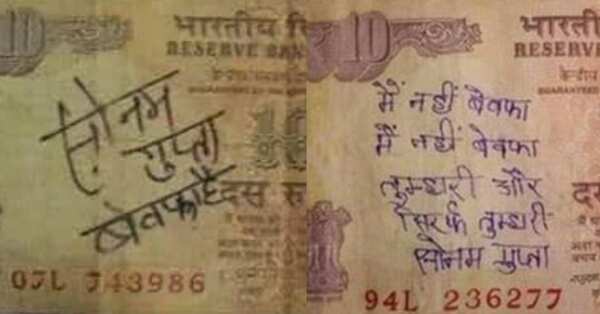 10
भारतीय रि
RESERVE BAN
सोनम
गुप्ता
बेवफा है
10
दस रु
07L 743986
10
भारती
RESERVE
केन्द्रीय
GUARANTEED
मैं नहीं बेवफा
मैं नहीं बेवफा
तुम्हारी और
सिर्फ तुम्हारी
सोनम गुप्ता
दस
94L 236277